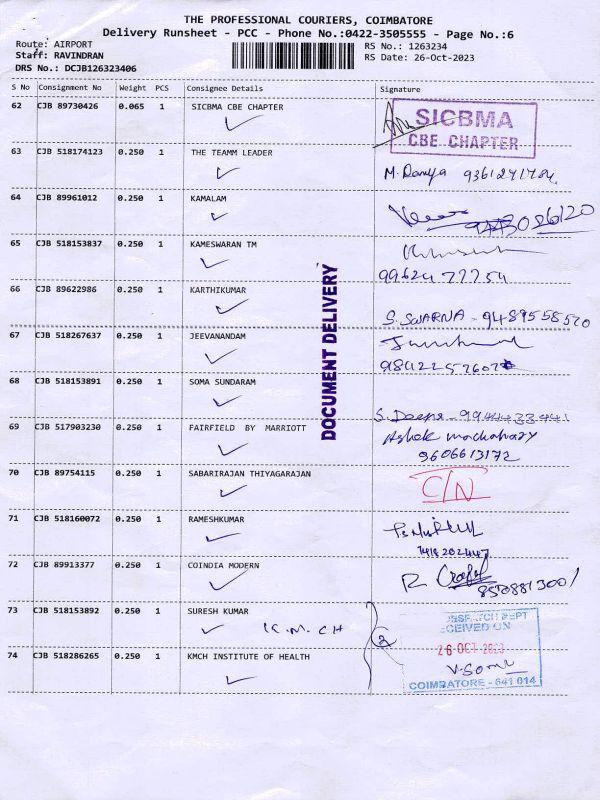 THE PROFESSIONAL COURIERS, COIMBATORE
Delivery Runsheet - PCC - Phone No.:0422-3505555 - Page No.:6
Route: AIRPORT RS No.: 1263234
Staff: RAVINDRAN RS Date: 26-Oct-2023
DRS No.: DCJB126323406
S No Consignment No Weight PCS Consignee Details Signature
62 CJB 89730426 0.065 1 SICBMA CBE CHAPTER
SICBMA
CBE CHAPTER
63 CJB 518174123 0.250 1 THE TEAMM LEADER
64 CJB 89961012 0.250 1 KAMALAM
65 CJB 518153837 0.250 1 KAMESWARAN TM
66 CJB 89622986 0.250 1 KARTHIKUMAR
S. SWARNA - 9489558520
67 CJB 518267637 0.250 1 JEEVANANDAM
68 CJB 518153891 0.250 1 SOMA SUNDARAM
S. Deepa - 9944433441
69 CJB 517903230 0.250 1 FAIRFIELD BY MARRIOTT
Ashok
9606613172
70 CJB 89754115 0.250 1 SABARIRAJAN THIYAGARAJAN
C/N
71 CJB 518160072 0.250 1 RAMESHKUMAR
72 CJB 89913377 0.250 1 COINDIA MODERN
R
73 CJB 518153892 0.250 1 SURESH KUMAR
K.M.CH
2
74 CJB 518286265 0.250 1 KMCH INSTITUTE OF HEALTH
DESPATCH DEPT
RECEIVED ON
26 OCT 2023
COIMBATORE - 641 014
DOCUMENT DELIVERY